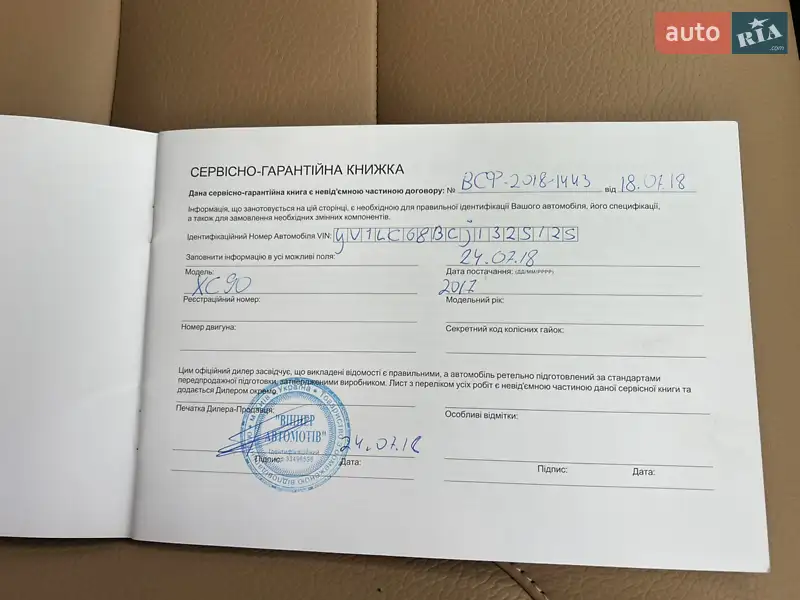 auto RIA.com
СЕРВІСНО-ГАРАНТІЙНА КНИЖКА
Дана сервісно-гарантійна книга є невід'ємною частиною договору: № ВСФ-2018-1443 від 18.07.18
Інформація, що занотовується на цій сторінці, є необхідною для правильної ідентифікації Вашого автомобіля, його специфікації,
а також для замовлення необхідних змінних компонентів.
Ідентифікаційний Номер Автомобіля VIN: YV1LC68BCJ1325125
Заповнити інформацію в усі можливі поля: 24.07.18
Модель: XC90 Дата постачання: (ДД/ММ/РРРР)
2017
Реєстраційний номер: Модельний рік:
Номер двигуна: Секретний код колісних гайок:
Цим офіційний дилер засвідчує, що викладені відомості є правильними, а автомобіль ретельно підготовлений за стандартами
передпродажної підготовки, затвердженими виробником. Лист з переліком усіх робіт є невід'ємною частиною даної сервісної книги та
додається Дилером окремо.
Печатка Дилера-Продавця: Особливі відмітки:
"ВІННЕР
АВТОМОТІВ"
24.07.18
Підпис: Дата: Підпис: Дата: